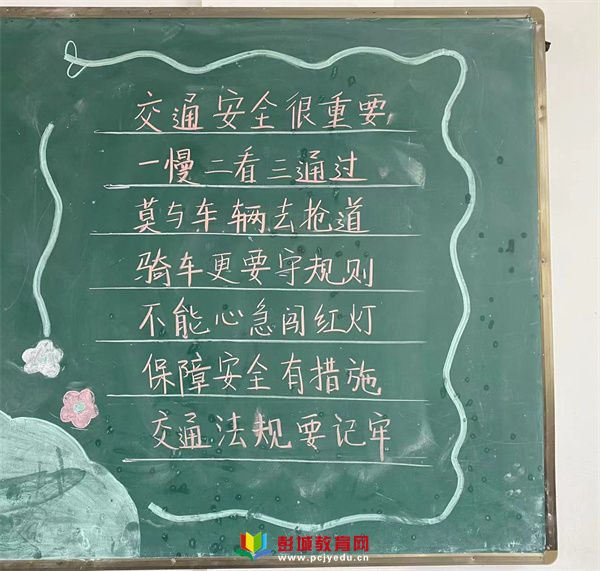 交通安全很重要
一慢二看三通过
莫与车辆去抢道
骑车更要守规则
不能心急闯红灯
保障安全有措施
交通法规要记牢
彭城教育网
www.pcjyedu.cn